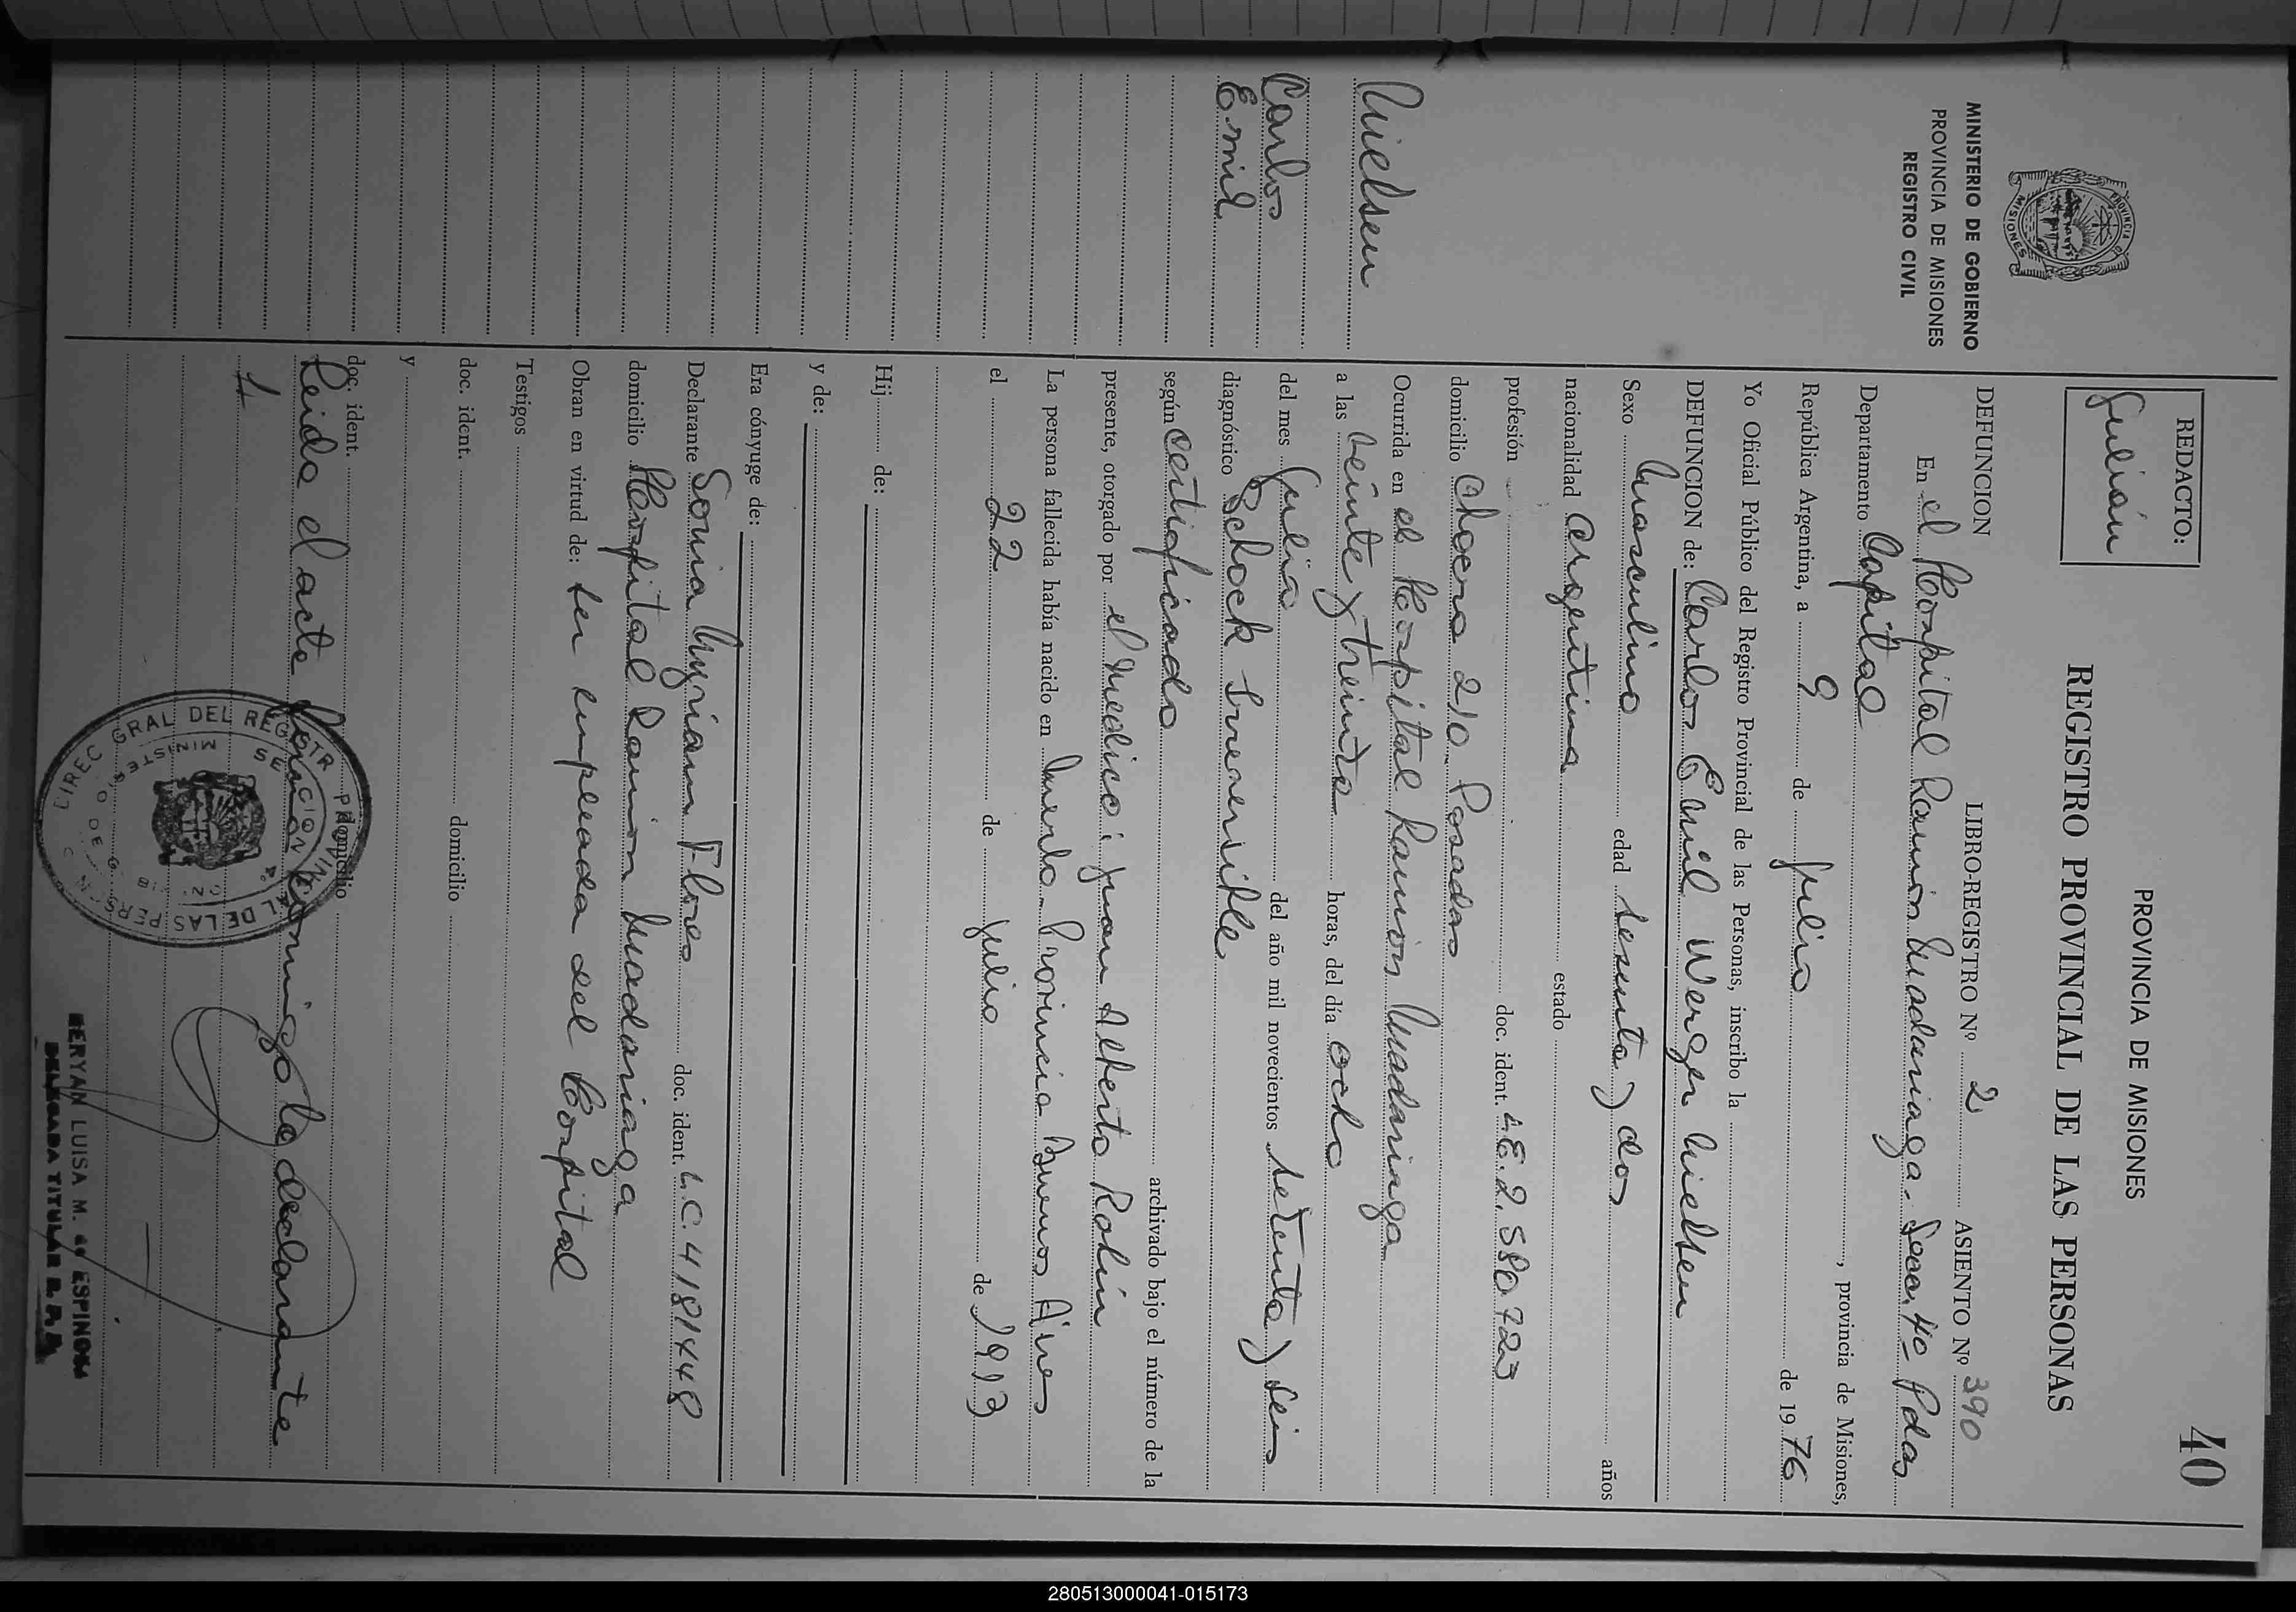 40
PROVINCIA DE MISIONES
REGISTRO PROVINCIAL DE LAS PERSONAS
REDACTO:
Julián
MINISTERIO DE GOBIERNO
PROVINCIA DE MISIONES
REGISTRO CIVIL
Nielsen
Carlos
Emil
DEFUNCION LIBRO-REGISTRO Nº 2 ASIENTO Nº 390
En el Hospital Ramón Madariaga - Secc. 4º Pdas
Departamento Capital, provincia de Misiones,
República Argentina, a 9 de julio de 1976
Yo Oficial Público del Registro Provincial de las Personas, inscribo la
DEFUNCION de: Carlos Emil Werger Nielsen
Sexo Masculino edad sesenta y dos años
nacionalidad argentina estado
profesión doc. ident. L.E. 2.580.723
domicilio Chacra 210. Posadas
Ocurrida en el Hospital Ramón Madariaga
a las veinte y treinta horas, del día ocho
del mes julio del año mil novecientos setenta y seis
diagnóstico Schock Irreversible
según certificado archivado bajo el número de la
presente, otorgado por el medico: Juan Alberto Rolin
La persona fallecida había nacido en Merlo - Provincia Buenos Aires
el 22 de julio de 1913
Hij de:
y de:
Era cónyuge de:
Declarante Sonia Myriam Flores doc. ident. L.C. 4181448
domicilio Hospital Ramón Madariaga
Obran en virtud de: ser empleada del Hospital
Testigos
doc. ident. domicilio
y
doc. ident. domicilio
Leida el acta firman conmigo la declarante
DIREC GRAL DEL REGISTR PROVINCIAL DE LAS PERS
MERYAN LUISA M. de ESPINOSA
DELEGADA TITULAR R. P. P.
280513000041-015173